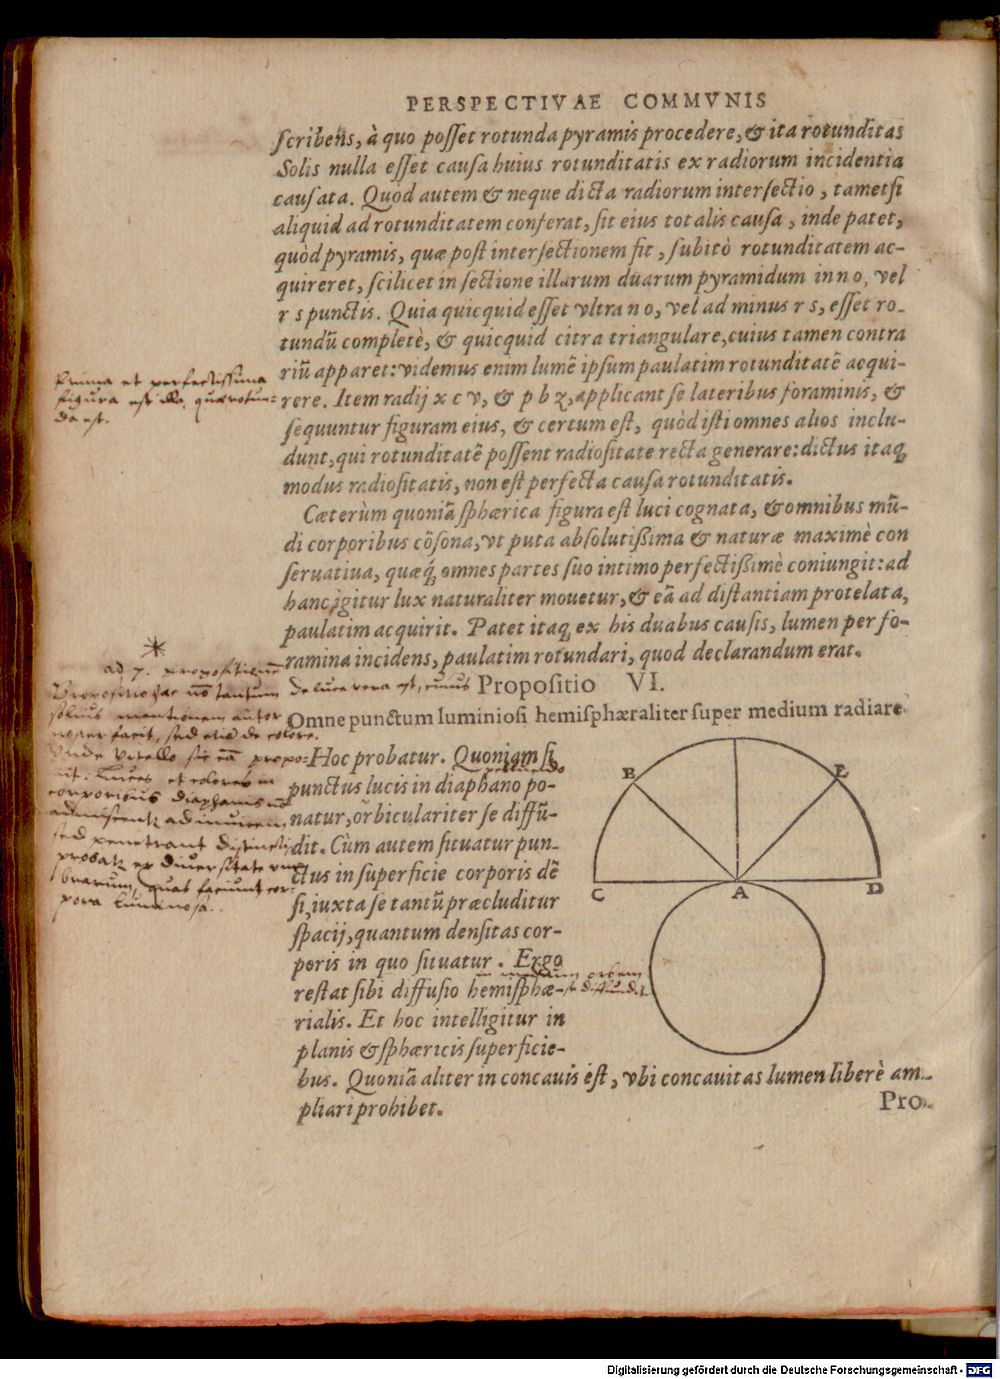 PERSPECTIVAE COMMVNIS
scribens, à quo posset rotunda pyramis procedere, & ita rotunditas
Solis nulla esset causa huius rotunditatis ex radiorum incidentia
causata. Quòd autem & neque dicta radiorum intersectio, tametsi
aliquid ad rotunditatem conferat, sit eius totalis causa, inde patet,
quòd pyramis, quæ post intersectionem fit, subitò rotunditatem ac-
quireret, scilicet in sectione illarum duarum pyramidum in n o, vel
r s punctis. Quia quicquid esset vltra n o, vel ad minus r s, esset ro-
tundũ completè, & quicquid citra triangulare, cuius tamen contra
riũ apparet: videmus enim lumẽ ipsum paulatim rotunditatẽ acqui-
Prima et perfectissima
figura est illa, quæ rotun-
da est.
rere. Item radij x c v, & p b z, applicant se lateribus foraminis, &
sequuntur figuram eius, & certum est, quòd isti omnes alios inclu-
dunt, qui rotunditatẽ possent radiositate recta generare: dictus itaq;
modus radiositatis, non est perfecta causa rotunditatis.
Cæterùm quoniã sphærica figura est luci cognata, & omnibus mũ-
di corporibus cõsona, vt puta absolutißima & naturæ maximè con
seruatiua, quæq́; omnes partes suo intimo perfectißimè coniungit: ad
hanc igitur lux naturaliter mouetur, & eã ad distantiam protelata,
paulatim acquirit. Patet itaq; ex his duabus causis, lumen per fo-
ramina incidens, paulatim rotundari, quod declarandum erat.
ad 7. propositionẽ
Propositio hæc nõ tantum
de luce vera est, cuius
solius mentionem autor
facit, sed etiã de colore.
Vnde Vitello sic eã propo-
nit. Luces et colores in
corporibus diaphanis nõ
admiscentur adinuicem,
sed penetrant distincti,
probatur ex diuersitate vm
brarum, quas faciunt cor-
pora luminosa.
Propositio VI.
Omne punctum luminosi hemisphæraliter super medium radiare.
Hoc probatur. Quoniam si
punctus lucis in diaphano po-
natur, orbiculariter se diffũ-
dit. Cùm autem situatur pun-
ctus in superficie corporis dẽ
si, iuxta se tantũ præcluditur
spacij, quantum densitas cor-
poris in quo situatur. Ergo
in medium orbem
restat sibi diffusio hemisphæ-
se diffundit
rialis. Et hoc intelligitur in
planis & sphæricis superficie-
bus. Quoniã aliter in concauis est, vbi concauitas lumen liberè am-
pliari prohibet.
Pro-
B
E
C
A
D
Digitalisierung gefördert durch die Deutsche Forschungsgemeinschaft - DFG